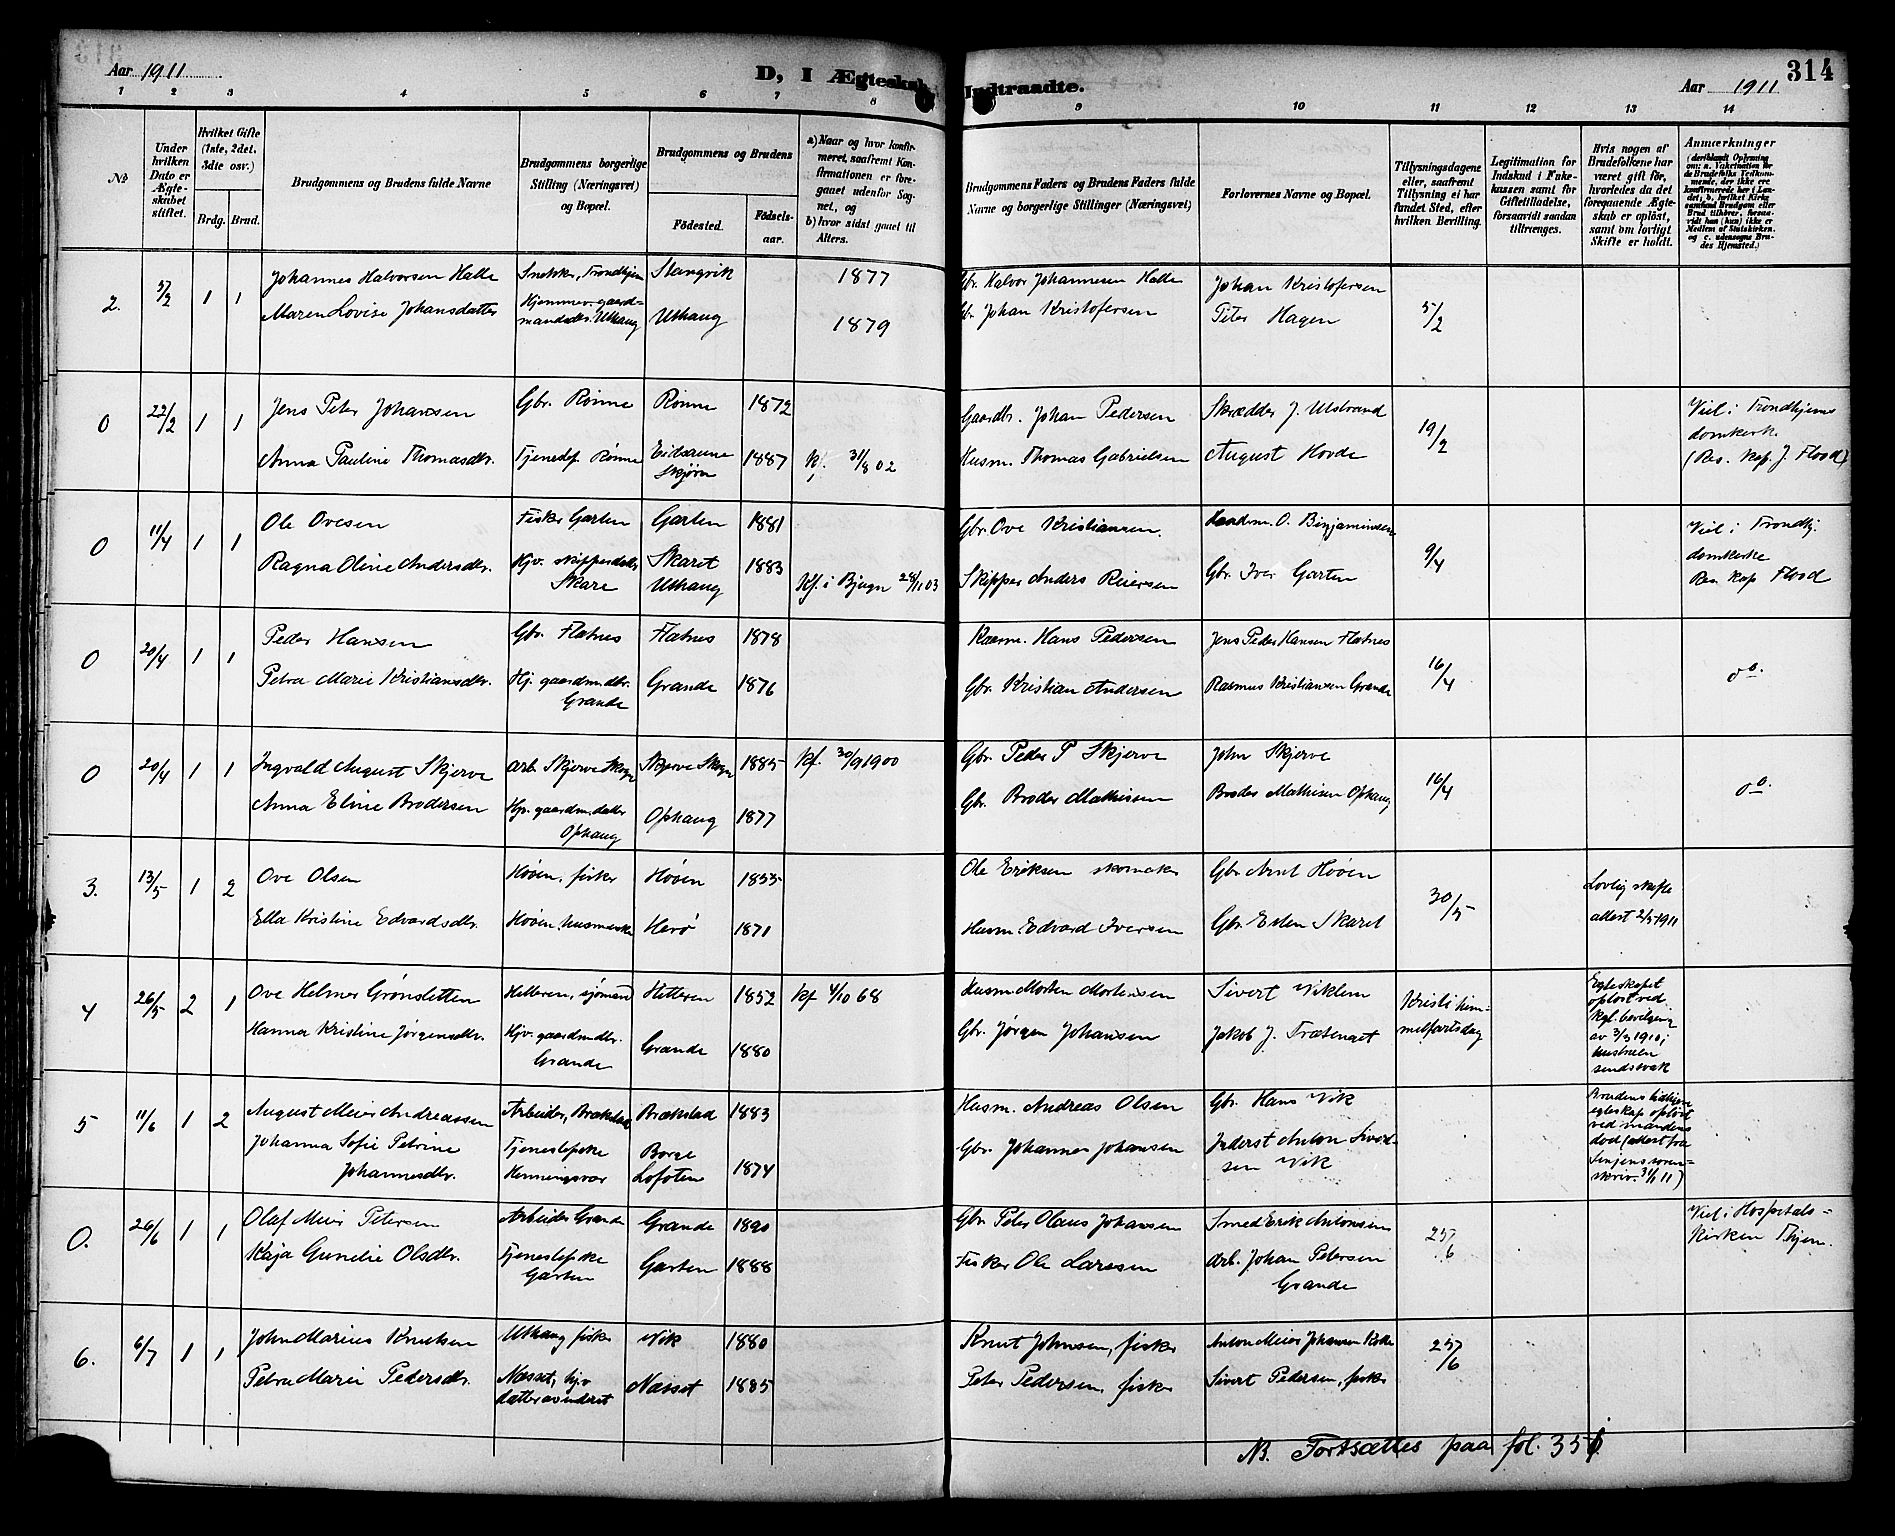 Aar 1911
D, I Ægteskab
Indtraadte.
Aar 1911
314
1 2 3 4 5 6 7 8 9 10 11 12 13 14
№
Under hvilken Dato er Ægteskabet stiftet.
Hvilket Gifte (1ste, 2det, 3die osv.)
Brdg. Brud.
Brudgommens og Brudens fulde Navne
Brudgommens borgerlige Stilling (Næringsvei) og Bopæl.
Brudgommens og Brudens
Födested.
Födselsaar.
a) Naar og hvor konfirmeret, saafremt Konfirmationen er foregaaet udenfor Sognet, og
b) hvor sidst gaaet til Alters.
Brudgommens Faders og Brudens Faders fulde Navne og borgerlige Stillinger (Næringsvei)
Forlovernes Navne og Bopæl.
Tillysningsdagene eller, saafremt Tillysning ei har fundet Sted, efter hvilken Bevilling.
Legitimation for Indskud i Enkekassen samt for Giftetilladelse, forsaavidt saadan tiltrænges.
Hvis nogen af Brudefolkene har været gift før, hvorledes da det foregaaende Ægteskab er oplöst, samt om lovligt Skifte er holdt.
Anmærkninger
2. 5/2 1 1 Johannes Halvorsen Halle Snekker, Trondhjem Stangvik 1877 Gbr. Halvor Johannesen Halle Johan Kristofersen 5/2
Maren Lovise Johansdatter Hjemmev. gaardmandsdtr. Uthaug Uthaug 1879 Gbr. Johan Kristofersen Peter Hagen
0 22/2 1 1 Jens Peter Johansen Gbr. Rønne Rønne 1872 Gaardbr. Johan Pedersen Skrædder J. Ulstrand 19/2 Viel i Trondhjems domkerk. (Res. kap. J. Flood)
Anna Pauline Thomasdtr. Tjenestp. Rønne Skjørn 1887 kf. 31/8 02 Husm. Thomas Gabrielsen August Hovde
0 11/4 1 1 Ole Ovesen Fisker Garten Garten 1881 Gbr. Ove Kristiansen. Handsm. O. Binjaminsen 9/4 Viel i Trondhj. domkerke Res. kap Flood
Ragna Oline Andersdtr. Hjv. skipperdatter Skare Skaret Uthaug 1883 Kf. i Bjugn 28/11 03 Skipper Anders Reiersen Gbr. Iver Garten
0 20/4 1 1 Peder Hansen Gbr. Flatnes Flatnes 1878 Kaarm. Hans Pedersen Jens Peder Hansen Flatnes 16/4 do.
Petra Marie Kristiansdtr. Hj. gaardm.dtr. Grande Grande 1876 Gbr. Kristian Andersen Rasmus Kristiansen Grande
0 20/4 1 1 Ingvald August Skjerve Arb. Skjerve Skogn Skjerve Skogn 1885 kf. 30/9 1900 Gbr. Peder P Skjerve John Skjerve 16/4 do.
Anna Eline Brodersen Hjv. gaardm.datter Ophaug Ophaug 1877 Gbr. Broder Mathisen Broder Mathisen Ophaug
3. 13/5 1 2 Ove Olsen Høien, fisker Høien 1853 Ole Eriksen skomaker Gbr Arnt Høien 30/5 Lovlig skifte attest 2/5 1911
Ella Kristine Edvardsdtr. Høien, husmerske Herö 1871 Husm. Edvard Iversen Gbr. Esten Skaret
4 26/5 2 1 Ove Helmer Grönsletten Hitteren, sjömand Hitteren 1852 kf 4/10 68 Husm. Morten Mortensen Sivert Viklem Kristi himmelfartsdag Egteskapet oplöst ved kgl. bevilgning av 3/3 1910; hustruen sindssvak
Hanna Kristine Jörgensdtr. Hjv. gaardm.dtr. Grande Grande 1880 Gbr. Jørgen Johansen Jakob J. Træteneset
5 11/6 1 2 August Meier Andreassen Arbeider, Brækstad Brækstad 1883 Husm. Andreas Olsen Gbr. Hans Vik Brudens tidligere egteskap oplöst ved mandens död (attest fra Senjens sorenskriv. 31/1 11)
Johanna Sofie Petrine Johannesdtr. Tjenestepike Henningsvær Borge Lofoten 1874 Gbr. Johannes Johansen Inderst Anton Sivertsen Vik
0. 26/6 1 1 Olaf Meier Petersen Arbeider Grande Grande 1890 Gbr Peter Olaus Johansen Smed Erik Antonsen 25/6 Viel i Hospitalskirken Thjem.
Kaja Gunelie Olsdtr. Tjenestepike Garten Garten 1888 Fisker Ole Larssen Arb. Johan Petersen Grande
6. 6/7 1 1 John Marius Knutsen Uthaug fisker Vik 1880 Knut Johnsen, fisker Anton Meier Johansen 25/6
Petra Marie Pedersdtr. Næsset, hjv datter Næsset 1885 Peter Pedersen, fisker Sivert Pedersen, fisker
NB. Fortsættes paa fol. 351